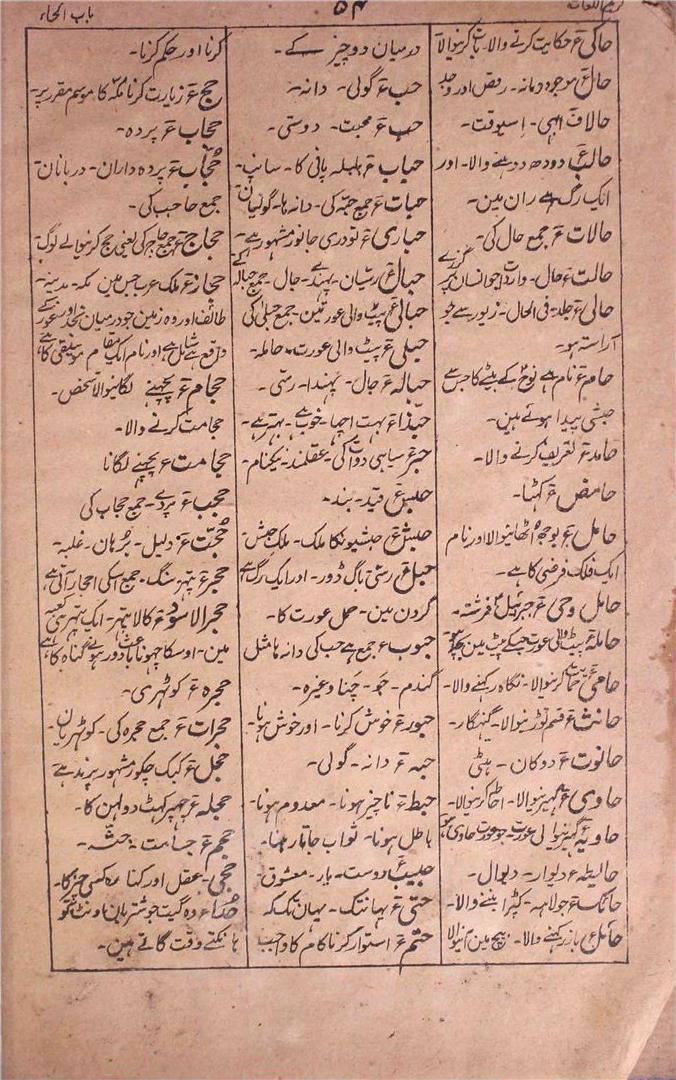 باب الحاء
۵۴
کریم اللغات
حاکی ع حکایت کرنے والا۔ بات کرنیوالا
حال ع موجودہ زمانہ۔ رقص اور وجد
حالاً ف ابھی۔ اسیوقت۔
حالب ع دودھ دوہنے والا۔ اور
ایک رگ ہے ران مین۔
حالات ع جمع حال کی۔
حالت ع حال۔ واردات جو انسان پر گزرے
حالی ع جلد۔ فی الحال۔ زیور سے جو
آراستہ ہو۔
حام ع نام ہے نوح کے بیٹے کا جس سے
حبشی پیدا ہوئے ہین۔
حامد ع تعریف کرنے والا۔
حامض ع کھٹا۔
حامل ع بوجھ اٹھانیوالا اور نام
ایک فلک فرضی کا ہے۔
حامل وحی ع جبرئیل فرشتہ۔
حاملہ ع پیٹ والی عورت جسکے پیٹ مین بچہ ہو
حامی ع حمایت کرنیوالا۔ نگاہ رکھنے والا۔
حانث ع قسم توڑنیوالا۔ گنہگار۔
حانوت ع دوکان۔ ہٹی
حاوی ع گھیرنیوالا۔ احاطہ کرنیوالا۔
حاویہ ع گھیرنیوالی عورت۔ جو عورت حاوی ہو
حائط ع دیوار۔ دیوال۔
حائک ع جولاہہ۔ کپڑا بننے والا۔
حائل ع باز رکھنے والا۔ بیچ مین آنیوالا
درمیان دو چیز کے۔
حب ع گولی۔ دانہ۔
حب ع محبت۔ دوستی۔
حباب ع بلبلہ پانی کا۔ سانپ۔
حبات ع جمع حبہ کی۔ دانہ ہا۔ گولیان
حباری ع تودری جانور مشہور ہے۔
حبال ع رسیان۔ پھندے۔ جال۔ جمع حبالہ کی
حبالی ع پیٹ والی عورتین۔ جمع حبلی کی
حبلی ع پیٹ والی عورت۔ حاملہ۔
حبالہ ع جال۔ پھندا۔ رسی۔
حبذا ع بہت اچھا۔ خوب ہے۔ بہتر ہے۔
حبر ع سیاہی دوات کی۔ عقلمند۔ نیکنام۔
حبس ع قید۔ بند۔
حبش ع حبشیونکا ملک۔ ملک حبش۔
حبل ع رسی۔ باگ ڈور۔ اور ایک رگ ہے
گردن مین۔ حمل عورت کا۔
حبوب ع جمع ہے حب کی دانہ ہا مثل
گندم۔ جو۔ چنا وغیرہ۔
حبور ع خوش کرنا۔ اور خوش ہونا۔
حبہ ع دانہ۔ گولی۔
حبط ع ناچیز ہونا۔ معدوم ہونا۔
باطل ہونا۔ ثواب جاتا رہنا۔
حبیب ع دوست۔ یار۔ معشوق۔
حتی ع یہانتک۔ یہان تک کہ
حتم ع استوار کرنا کام کا واجب
کرنا اور حکم کرنا۔
حج ع زیارت کرنا مکہ کا موسم مقرر پر۔
حجاب ع پردہ۔
حجاب ع پردہ داران۔ دربانان
جمع حاجب کی۔
حجاج ع جمع حاج کی یعنی حج کرنیوالے لوگ۔
حجاز ع ملک عرب جس مین مکہ۔ مدینہ۔
طائف اور وہ زمین جو درمیان نجد اور غور کے
واقع ہے شامل ہے اور نام ایک مقام موسیقی کا ہے
حجام ع پچھنے لگانیوالا شخص۔
حجامت کرنے والا۔
حجامت ع پچھنے لگانا
حجب ع پردے۔ جمع حجاب کی
حجت ع دلیل۔ برہان۔ غلبہ۔
حجر ع پتھر۔ سنگ۔ جمع اسکی احجار آتی ہے
حجر الاسود ع کالا پتھر۔ ایک پتھر ہے کعبہ
مین۔ اوسکا چھونا باعث دور ہونے گناہ کا ہے
حجرہ ع کوٹھری۔
حجرات ع جمع حجرہ کی۔ کوٹھریان۔
حجل ع کبک چکور مشہور پرند ہے
حجلہ ع چھپر کھٹ دولہن کا۔
حجم ع جسامت۔ جثہ۔
حجی۔ عقل اور کنارہ کسی چیز کا۔
حدا ع وہ گیت جو شتربان اونٹ کو
ہانکتے وقت گاتے ہین۔